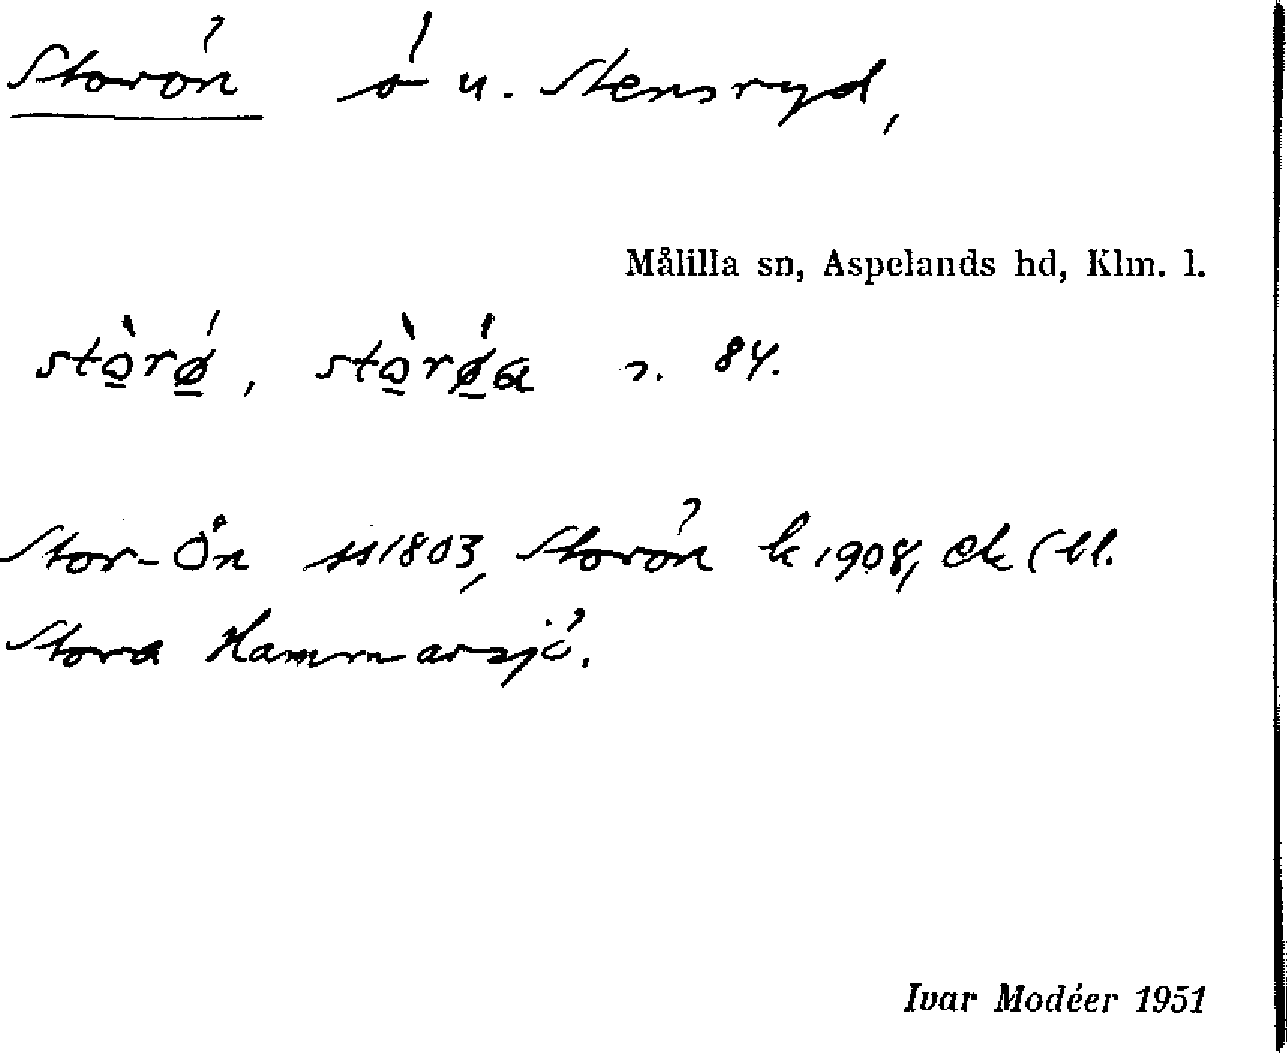 Storön ö u. Stensryd,
Målilla sn, Aspelands hd, Klm. l.
stò̲rǿ̲, stò̲rǿ̲a s. 84.
Stor-Ön ss1803, Storön k 1908, ek (bl.
Stora Hammarsjö.
Ivar Modéer 1951